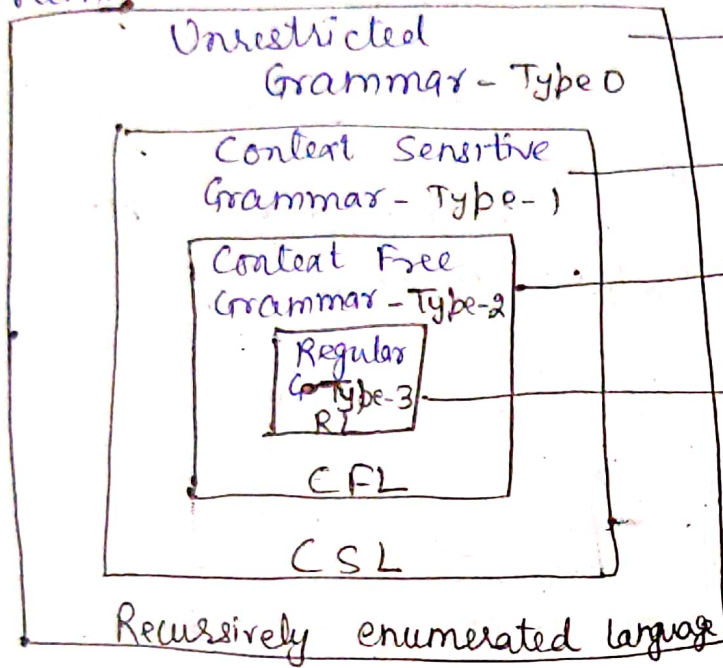 Unrestricted
Grammar - Type 0
Context Sensitive
Grammar - Type - 1
Context Free
Grammar - Type-2
Regular
G Type-3
RL
CFL
CSL
Recussively enumerated language